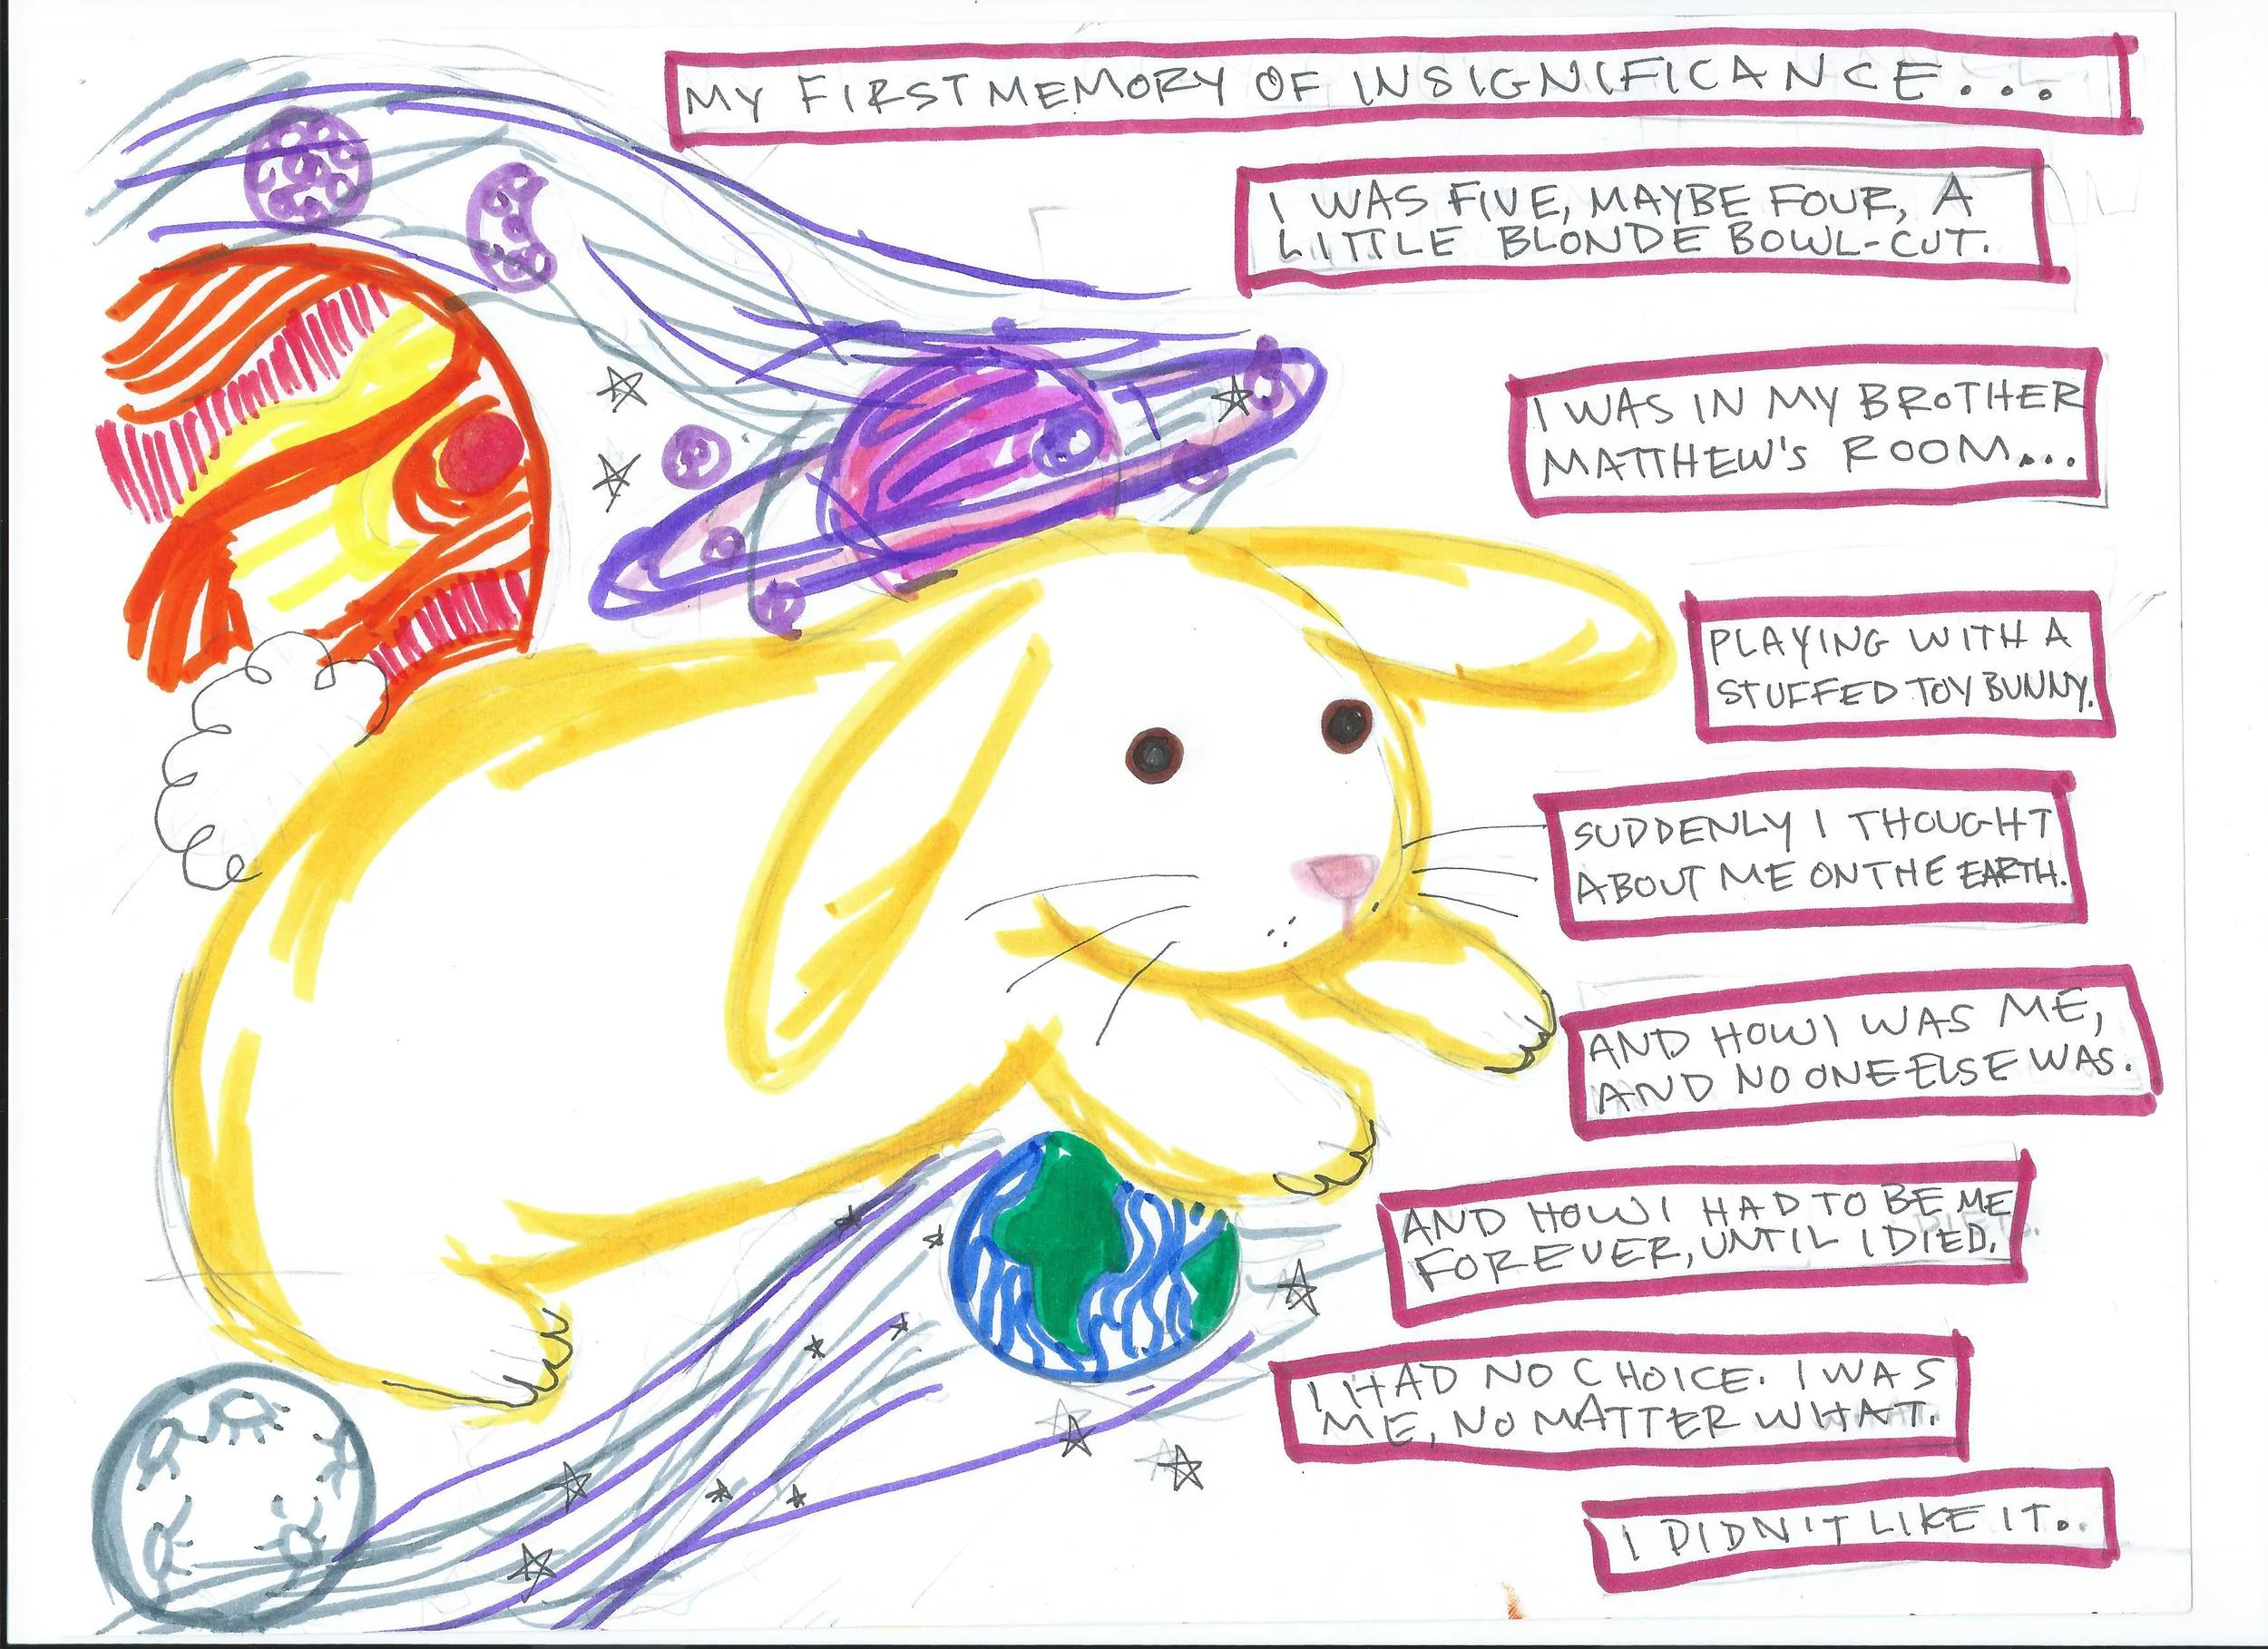 MY FIRST MEMORY OF INSIGNIFICANCE...
I WAS FIVE, MAYBE FOUR, A
LITTLE BLONDE BOWL-CUT.
I WAS IN MY BROTHER
MATTHEW'S ROOM...
PLAYING WITH A
STUFFED TOY BUNNY.
SUDDENLY I THOUGHT
ABOUT ME ON THE EARTH.
AND HOW I WAS ME,
AND NO ONE ELSE WAS.
AND HOW I HAD TO BE ME
FOREVER, UNTIL I DIED.
I HAD NO CHOICE. I WAS
ME, NO MATTER WHAT.
I DIDN'T LIKE IT.